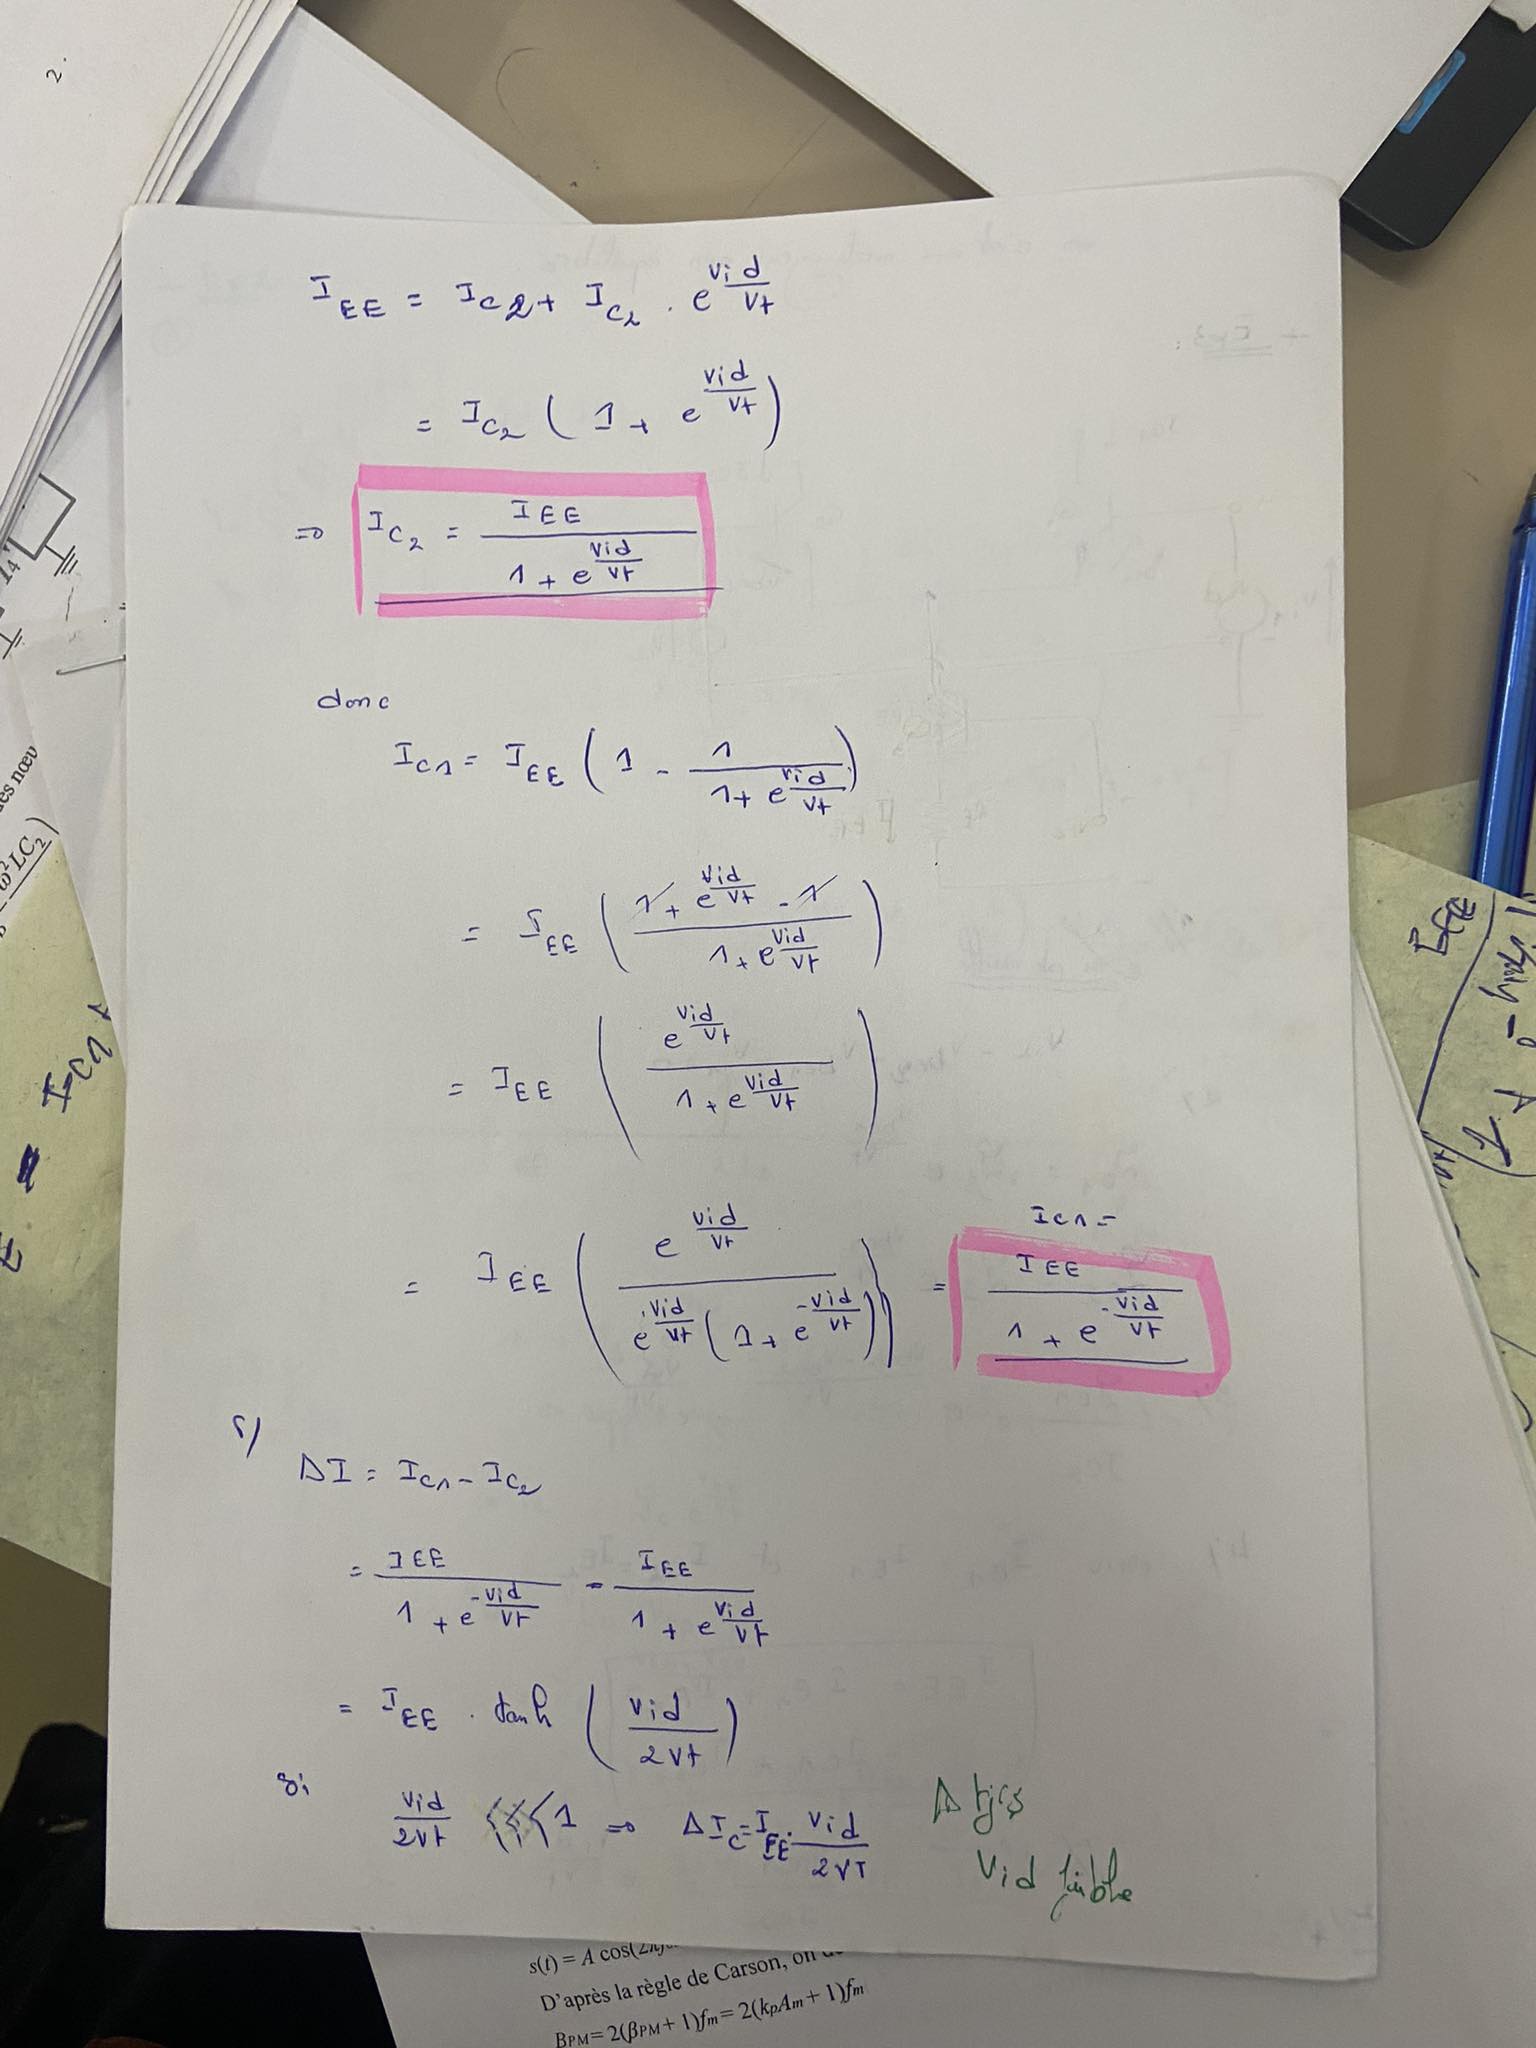 2.
I_EE = I_C2 + I_C2 . e^(Vid/Vt)
= I_C2 ( 1 + e^(Vid/Vt) )
=> I_C2 = I_EE / (1 + e^(Vid/Vt))
donc
I_C1 = I_EE ( 1 - 1 / (1 + e^(Vid/Vt)) )
= I_EE ( (1 + e^(Vid/Vt) - 1) / (1 + e^(Vid/Vt)) )
= I_EE ( e^(Vid/Vt) / (1 + e^(Vid/Vt)) )
= I_EE ( e^(Vid/Vt) / (e^(Vid/Vt) ( 1 + e^(-Vid/Vt) )) ) = I_C1 = I_EE / (1 + e^(-Vid/Vt))
5/
ΔI = I_C1 - I_C2
= I_EE / (1 + e^(-Vid/Vt)) - I_EE / (1 + e^(Vid/Vt))
= I_EE . tanh ( Vid / 2Vt )
si
Vid / 2Vt <<< 1 => ΔI_C = I_EE . Vid / 2VT
Δ tjrs
Vid faible
s(t) = A cos(2π
D'après la règle de Carson, on
BPM = 2(βPM + 1)fm = 2(kpAm + 1)fm
ω²LC2)
I_C1
I_EE